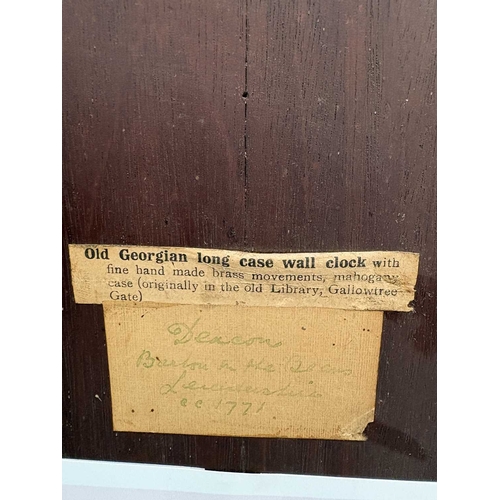 Old Georgian long case wall clock with
fine hand made brass movements, mahogany
case (originally in the old Library, Gallowtree
Gate)
Deacon
Barton in the
Leicestershire
1771